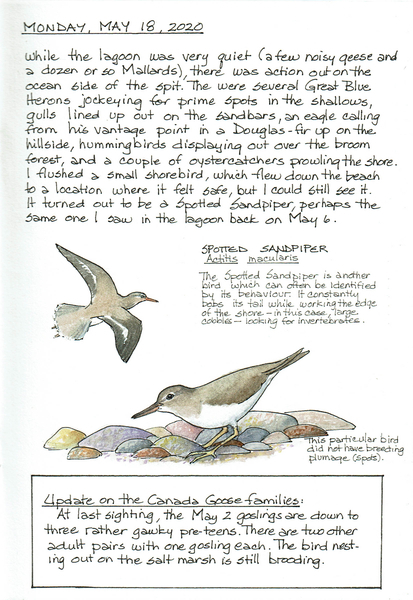 MONDAY, MAY 18, 2020
While the lagoon was very quiet (a few noisy geese and
a dozen or so Mallards), there was action out on the
ocean side of the spit. The were several Great Blue
Herons jockeying for prime spots in the shallows,
gulls lined up out on the sandbars, an eagle calling
from his vantage point in a Douglas-fir up on the
hillside, hummingbirds displaying out over the broom
forest, and a couple of oystercatchers prowling the shore.
I flushed a small shorebird, which flew down the beach
to a location where it felt safe, but I could still see it.
It turned out to be a Spotted Sandpiper, perhaps the
same one I saw in the lagoon back on May 6.
SPOTTED SANDPIPER
Actitis macularis
The Spotted Sandpiper is another
bird which can often be identified
by its behaviour. It constantly
bobs its tail while working the edge
of the shore - in this case, large
cobbles - looking for invertebrates.
This particular bird
did not have breeding
plumage (spots).
Update on the Canada Goose families:
At last sighting, the May 2 goslings are down to
three rather gawky pre-teens. There are two other
adult pairs with one gosling each. The bird nest-
ing out on the salt marsh is still brooding.